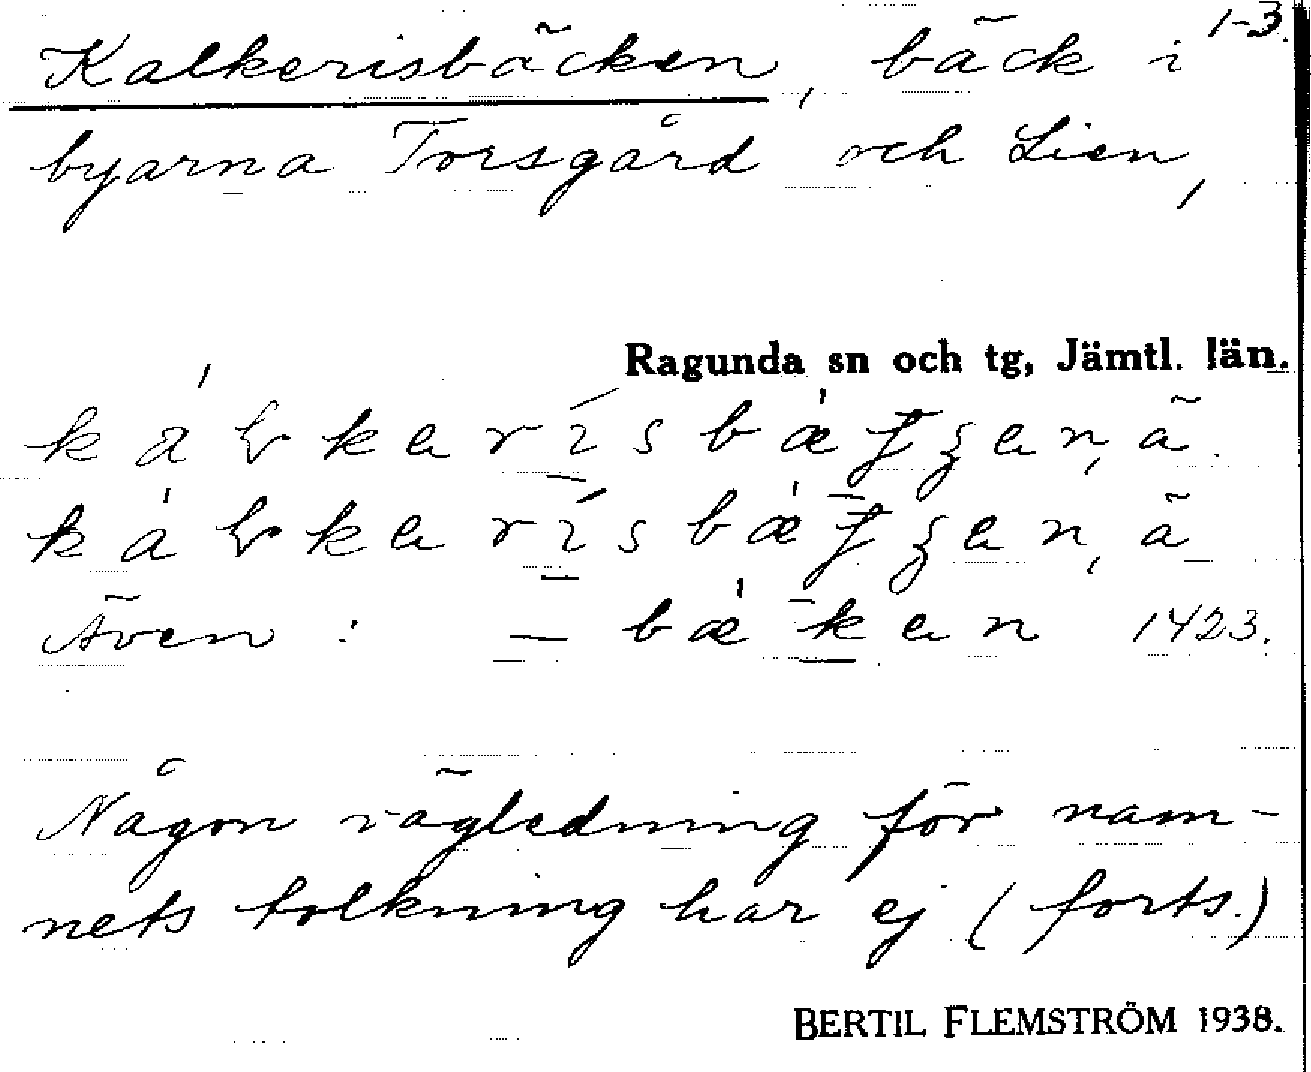 1-3.
Kalkerisbäcken, bäck i
byarna Torsgård och Lien,
Ragunda sn och tg, Jämtl. län.
Även: — bǽken 1423.
Någon vägledning för nam-
nets tolkning har ej (forts.)
BERTIL FLEMSTRÖM 1938.